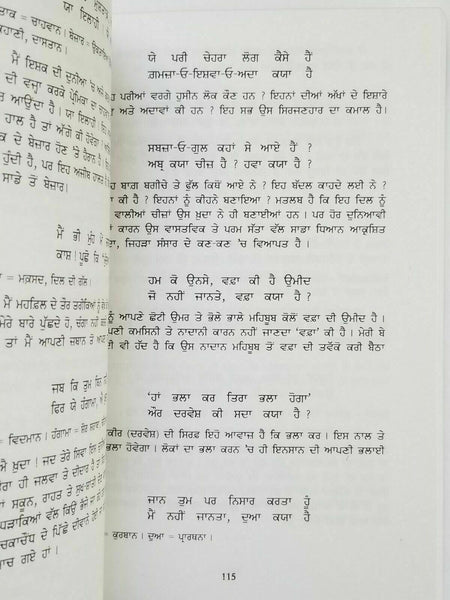 ਤਾਕ = ਚਾਹਵਾਨ। ਬੇਜ਼ਾਰ =
ਕਹਾਣੀ, ਦਾਸਤਾਨ।
ਮੈਂ ਇਸ਼ਕ ਦੀ ਦੁਨੀਆ 'ਚ ਅਜੇ
ਦੀ ਵਜ੍ਹਾ ਕਰਕੇ ਪ੍ਰੇਮਿਕਾ ਦਾ
ਆਉਂਦਾ ਹੈ। ਯਾ ਇਲਾਹੀ
ਹਾਲ ਹੈ ਤਾਂ ਅੱਗੇ ਕੀ ਹੋਵੇਗਾ।
ਦੇ ਬੇਜ਼ਾਰ ਹੋਣ 'ਤੇ ਹੈਰਾਨ ਹੈ।
ਹੁੰਦੀ ਹੈ, ਪਰ ਇਹ ਅਜੀਬ ਹਾਲਤ
ਸਾਡੇ ਤੋਂ ਬੇਜ਼ਾਰ।
ਮੈਂ ਭੀ ਮੂੰਹ ਮੇਂ
ਕਾਸ਼! ਪੂਛੋ ਕਿ
= ਮਕਸਦ, ਦਿਲ ਦੀ ਗੱਲ।
ਮੈਂ ਮਹਿਫ਼ਿਲ ਦੇ ਤੌਰ ਤਰੀਕਿਆਂ
ਮੇਰੇ ਬਾਰੇ ਪੁੱਛਦੇ ਹੋ, ਚੰਗਾ ਨਹੀਂ
ਤਾਂ ਮੈਂ ਆਪਣੀ ਜ਼ਬਾਨ ਤੋਂ ਆਪਣਾ
ਜਬ ਕਿ ਤੁਝ ਬਿਨ
ਫਿਰ ਯੇ ਹੰਗਾਮਾ, ਐ
= ਵਿਦਮਾਨ। ਹੰਗਾਮਾ = ਸ਼ੋਰ
ਐ ਖ਼ੁਦਾ! ਜਦ ਤੇਰੇ ਸਿਵਾ ਇਸ
ਹੀ ਜਲਵਾ ਤੇ ਦੀਦਾਰ ਹੈ ਤਾਂ
ਸਕੂਨ, ਰਾਹਤ ਤੇ
ਪੜਾਕਿਆਂ ਵੱਲ ਕਿਉਂ ਭੱਜੇ
ਚਕਾਚੌਂਧ ਦੇ ਪਿੱਛੇ ਦੀਵਾਨੇ
ਆਚ ਗਏ ਹਾਂ।
ਯੇ ਪਰੀ ਚੇਹਰਾ ਲੋਗ ਕੈਸੇ ਹੈਂ
ਗ਼ਮਜ਼ਾ-ਓ-ਇਸ਼ਵਾ-ਓ-ਅਦਾ ਕਯਾ ਹੈ
ਹ ਪਰੀਆਂ ਵਰਗੇ ਹੁਸੀਨ ਲੋਕ ਕੌਣ ਹਨ ? ਇਹਨਾਂ ਦੀਆਂ ਅੱਖਾਂ ਦੇ ਇਸ਼ਾਰੇ
ਅਤੇ ਅਦਾਵਾਂ ਕੀ ਹਨ ? ਇਹ ਸਭ ਉਸ ਸਿਰਜਣਹਾਰ ਦਾ ਕਮਾਲ ਹੈ।
ਸਬਜ਼ਾ-ਓ-ਗੁਲ ਕਹਾਂ ਸੇ ਆਏ ਹੈਂ ?
ਅਬ੍ਰ ਕਯਾ ਚੀਜ਼ ਹੈ ? ਹਵਾ ਕਯਾ ਹੈ ?
ਹ ਬਾਗ਼ ਬਗੀਚੇ ਤੇ ਫੁੱਲ ਕਿਥੋਂ ਆਏ ਨੇ ? ਇਹ ਬੱਦਲ ਕਾਹਦੇ ਲਈ ਨੇ ?
ਾ ਕੀ ਹੈ ? ਇਹਨਾਂ ਨੂੰ ਕੀਹਨੇ ਬਣਾਇਆ ? ਮਤਲਬ ਹੈ ਕਿ ਇਹ ਦਿਲ ਨੂੰ
ਵਾਲੀਆਂ ਚੀਜ਼ਾਂ ਉਸ ਖ਼ੁਦਾ ਨੇ ਹੀ ਬਣਾਈਆਂ ਹਨ। ਪਰ ਹੋਰ ਦੁਨਿਆਵੀ
ਾਂ ਕਾਰਨ ਉਸ ਵਾਸਤਵਿਕ ਤੇ ਪਰਮ ਸੱਤਾ ਵੱਲ ਸਾਡਾ ਧਿਆਨ ਆਕ੍ਰਸ਼ਿਤ
ਤਾ, ਜਿਹੜਾ ਸੰਸਾਰ ਦੇ ਕਣ-ਕਣ 'ਚ ਵਿਆਪਤ ਹੈ।
ਹਮ ਕੋ ਉਨਸੇ, ਵਫ਼ਾ ਕੀ ਹੈ ਉਮੀਦ
ਜੋ ਨਹੀਂ ਜਾਨਤੇ, ਵਫ਼ਾ ਕਯਾ ਹੈ ?
ਨੂੰ ਆਪਣੇ ਛੋਟੀ ਉਮਰ ਤੇ ਭੋਲੇ ਭਾਲੇ ਮਹਿਬੂਬ ਕੋਲੋਂ ਵਫ਼ਾ ਦੀ ਉਮੀਦ ਹੈ।
ਪਣੀ ਕਮਸਿਨੀ ਤੇ ਨਾਦਾਨੀ ਕਾਰਨ ਨਹੀਂ ਜਾਣਦਾ 'ਵਫ਼ਾ' ਕੀ ਹੈ। ਮੇਰੀ ਬੇ
ੀ ਵੀ ਹੱਦ ਹੈ ਕਿ ਉਸ ਨਾਦਾਨ ਮਹਿਬੂਬ ਤੋਂ ਵਫ਼ਾ ਦੀ ਤਵੱਕੋ ਕਰੀ ਬੈਠਾ
'ਹਾਂ ਭਲਾ ਕਰ ਤਿਰਾ ਭਲਾ ਹੋਗਾ'
ਔਰ ਦਰਵੇਸ਼ ਕੀ ਸਦਾ ਕਯਾ ਹੈ ?
ਕੀਰ (ਦਰਵੇਸ਼) ਦੀ ਸਿਰਫ਼ ਇਹੋ ਆਵਾਜ਼ ਹੈ ਕਿ ਭਲਾ ਕਰ। ਇਸ ਨਾਲ ਤੇ
ਭਲਾ ਹੋਵੇਗਾ। ਲੋਕਾਂ ਦਾ ਭਲਾ ਕਰਨ 'ਚ ਹੀ ਇਨਸਾਨ ਦੀ ਆਪਣੀ ਭਲਾਈ
ਜਾਨ ਤੁਮ ਪਰ ਨਿਸਾਰ ਕਰਤਾ ਹੂੰ
ਮੈਂ ਨਹੀਂ ਜਾਨਤਾ, ਦੁਆ ਕਯਾ ਹੈ
= ਕੁਰਬਾਨ। ਦੁਆ = ਪ੍ਰਾਰਥਨਾ।
115